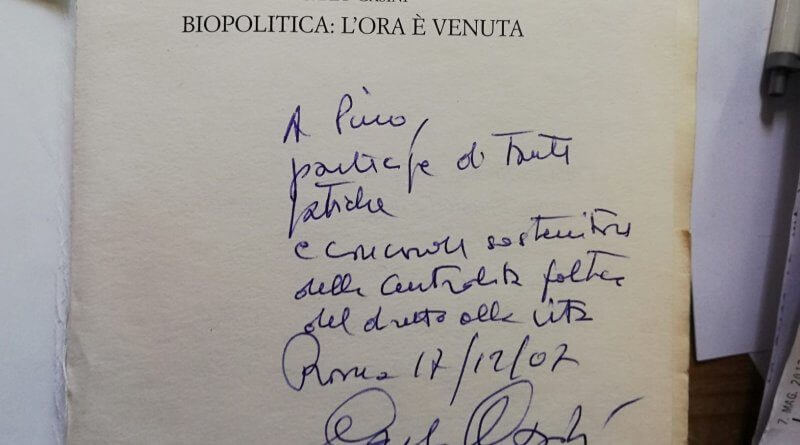 BIOPOLITICA: L'ORA È VENUTA
A Pino,
partecipe di tante
fatiche
e sostenitore
della centralità politica
del diritto alla vita
Roma 17/12/07
7. MAG. 20